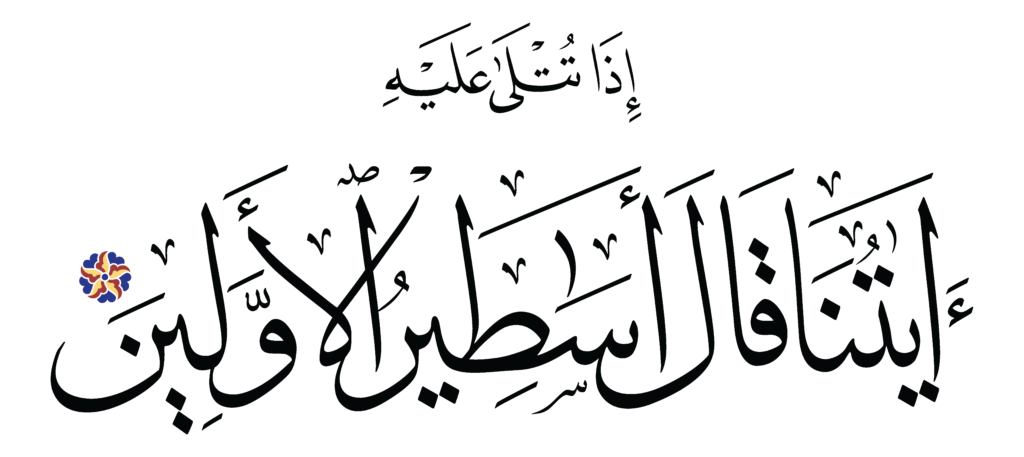 إِذَا تُتْلَىٰ عَلَيْهِ
ءَايَٰتُنَا قَالَ أَسَٰطِيرُ ٱلْأَوَّلِينَ